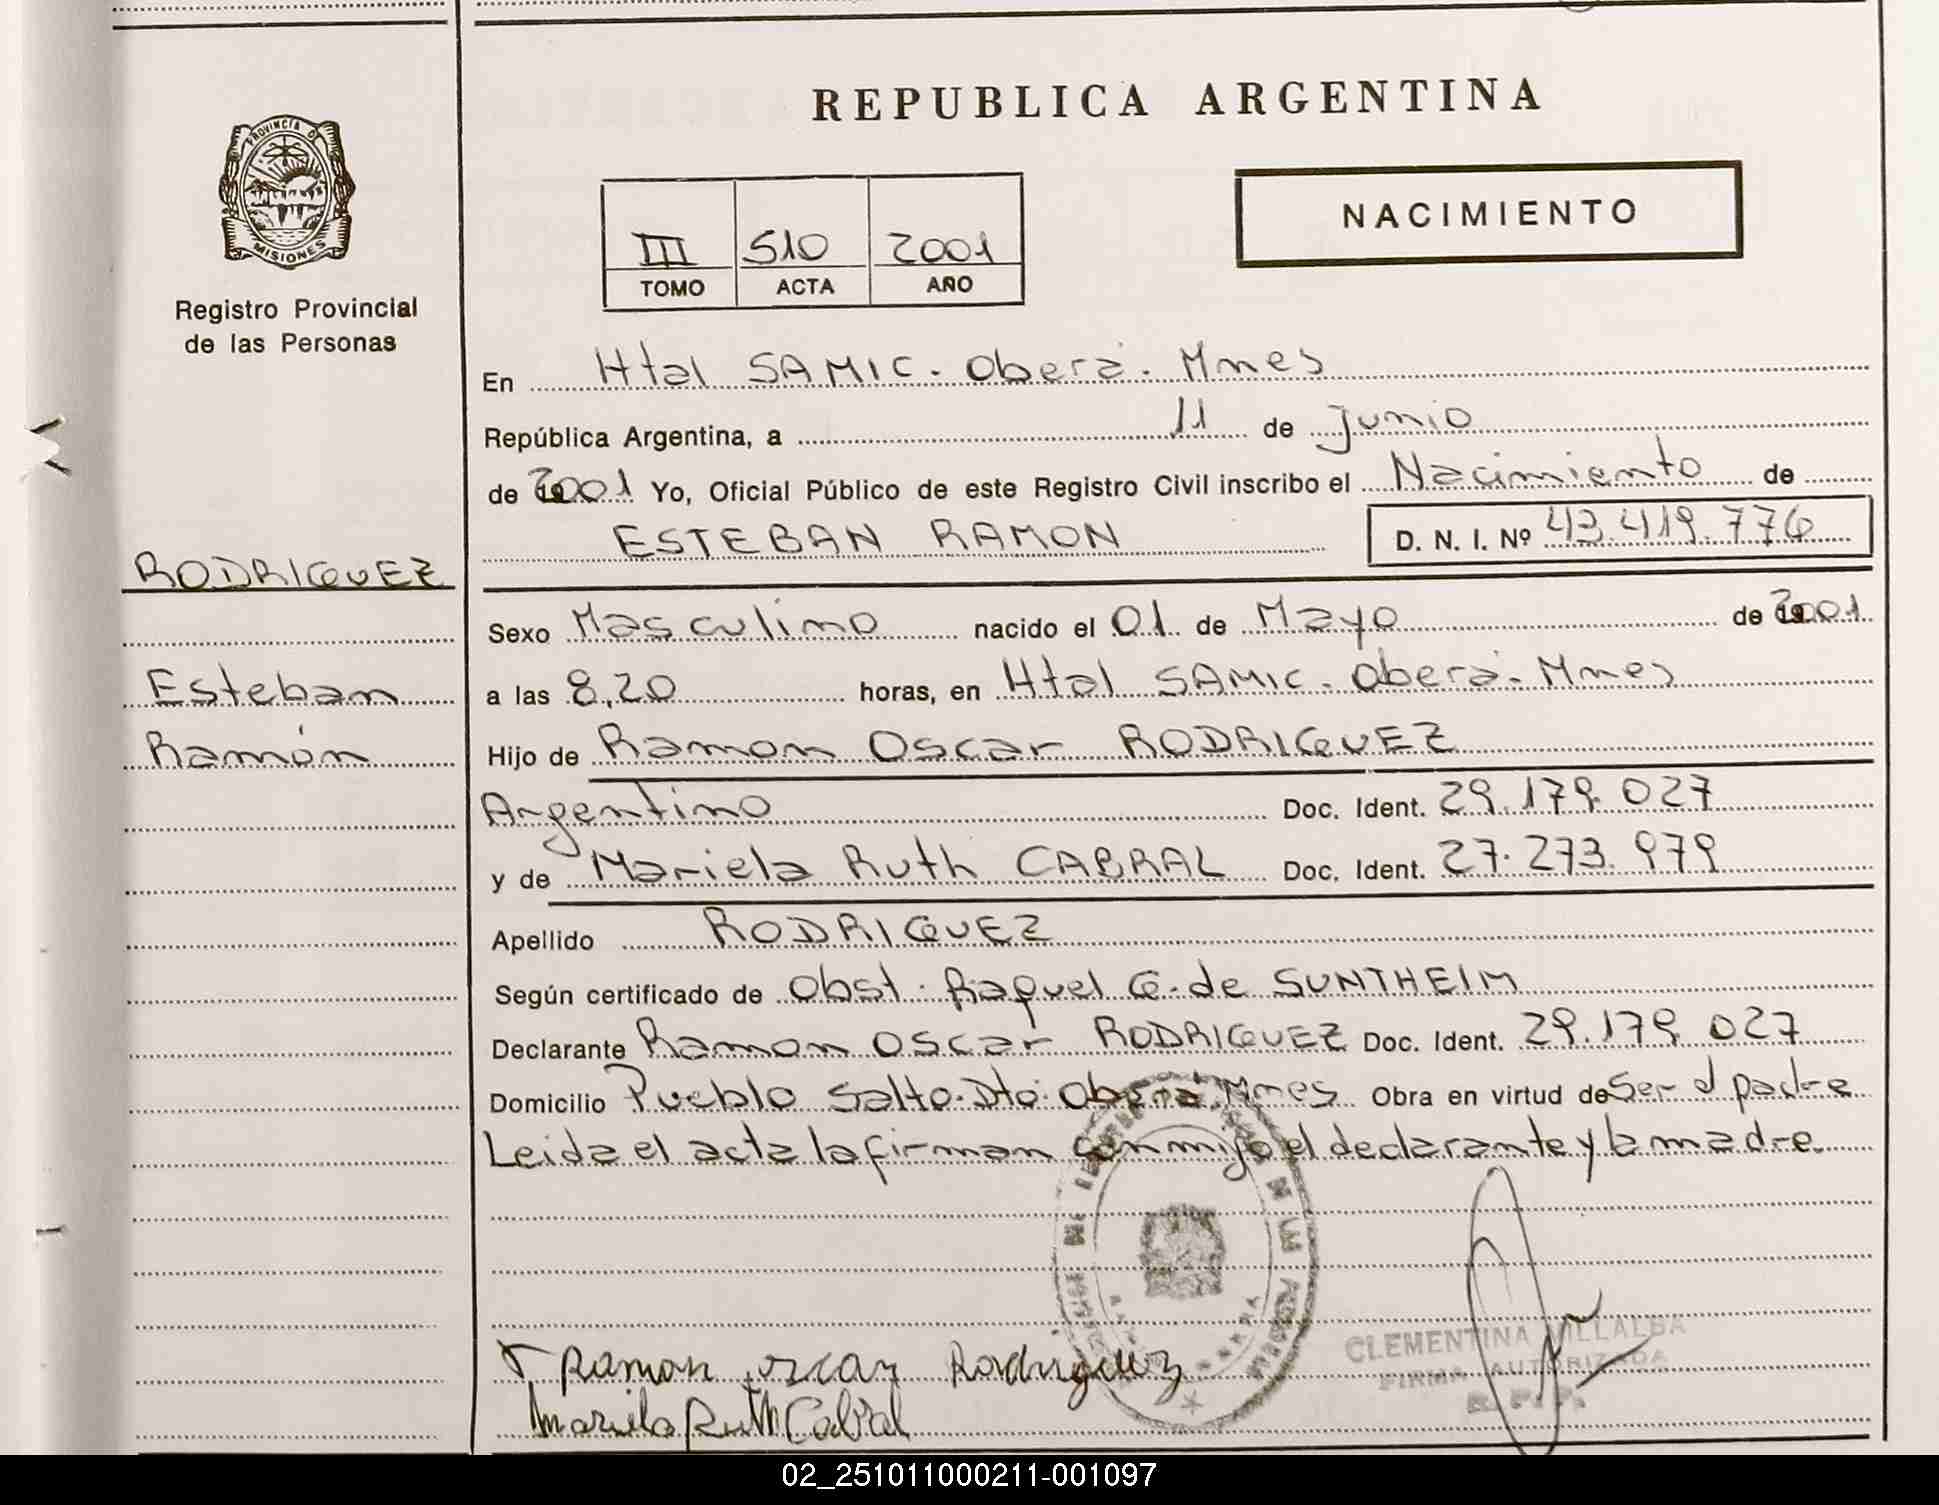 REPUBLICA ARGENTINA
PROVINCIA D
MISIONES
Registro Provincial
de las Personas
III 510 2001
TOMO ACTA AÑO
NACIMIENTO
En Htal SAMIC. Oberá. Mnes
República Argentina, a 11 de Junio
de 2001 Yo, Oficial Público de este Registro Civil inscribo el Nacimiento de
ESTEBAN RAMON D. N. I. Nº 43.419.776
RODRIGUEZ
Sexo Masculino nacido el 01 de Mayo de 2001
Esteban
a las 8,20 horas, en Htal SAMIC. Oberá. Mnes
Ramón
Hijo de Ramon Oscar RODRIGUEZ
Argentino Doc. Ident. 29.179.027
y de Mariela Ruth CABRAL Doc. Ident. 27.273.979
Apellido RODRIGUEZ
Según certificado de Obst. Raquel G. de SUNTHEIM
Declarante Ramon Oscar RODRIGUEZ Doc. Ident. 29.179.027
Domicilio Pueblo Salto. Dto. Oberá. Mnes Obra en virtud de Ser el padre
Leida el acta la firman conmigo el declarante y la madre.
CLEMENTINA VILLALBA
FIRMA AUTORIZADA
R. P. P.
Ramon oscar Rodriguez
Mariela Ruth Cabral
02_251011000211-001097